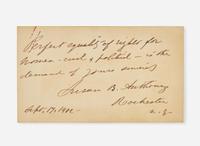 Perfect equality of rights for
women - civil & political - is the
demand of yours sincerely
Susan B. Anthony
Rochester
Sept. 17, 1902
N.Y.